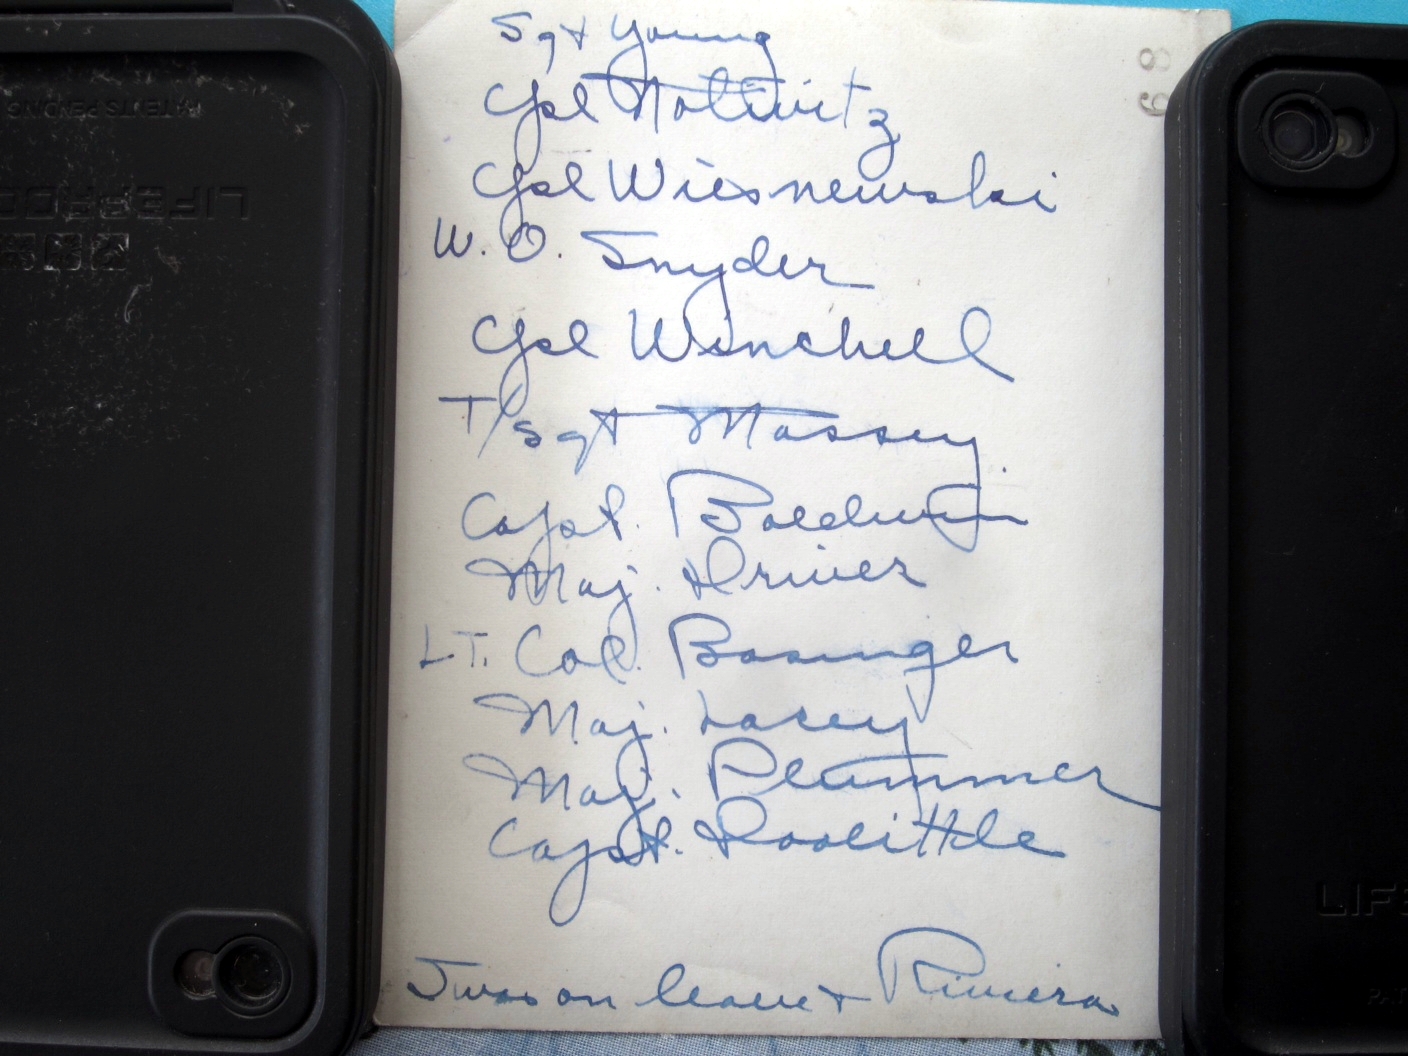 Sgt Young
Cpl Nolwitz
Cpl Wiesnewski
W. O. Snyder
Cpl Winchell
T/Sgt Massey
Capt. Baldwin
Maj. Driver
LT. Col. Basinger
Maj. Lacey
Maj. Plummer
Capt. Doolittle
I was on leave + Riviera
68
PATENTS PENDING
LIFEPROOF
LIF